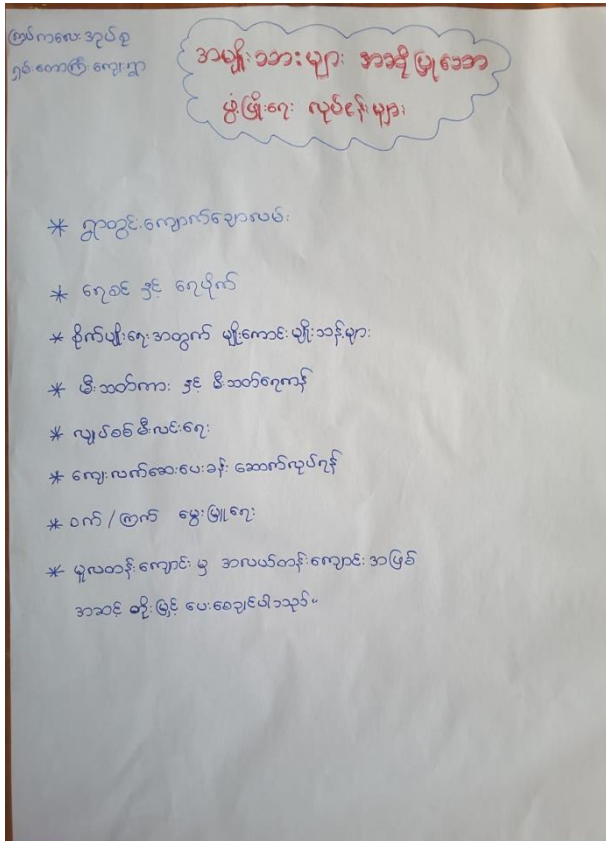 ကြပ်ကလေးအုပ်စု
ရှမ်းတောကြီးကျေးရွာ
အမျိုးသားများ အဆိုပြုသော
ဖွံ့ဖြိုးရေး လုပ်ငန်းများ
* ရွာတွင်းကျောက်ချောလမ်း
* ရေစင် နှင့် ရေပိုက်
* စိုက်ပျိုးရေးအတွက် မျိုးကောင်းမျိုးသန့်များ
* မီးသတ်ကား နှင့် မီးသတ်ရေကန်
* လျှပ်စစ်မီးလင်းရေး
* ကျေးလက်ဆေးပေးခန်း ဆောက်လုပ်ရန်
* ဝက်/ကြက် မွေးမြူရေး
* မူလတန်းကျောင်း မှ အလယ်တန်းကျောင်းအဖြစ်
အဆင့် တိုးမြှင့် ပေးစေချင်ပါသည်။